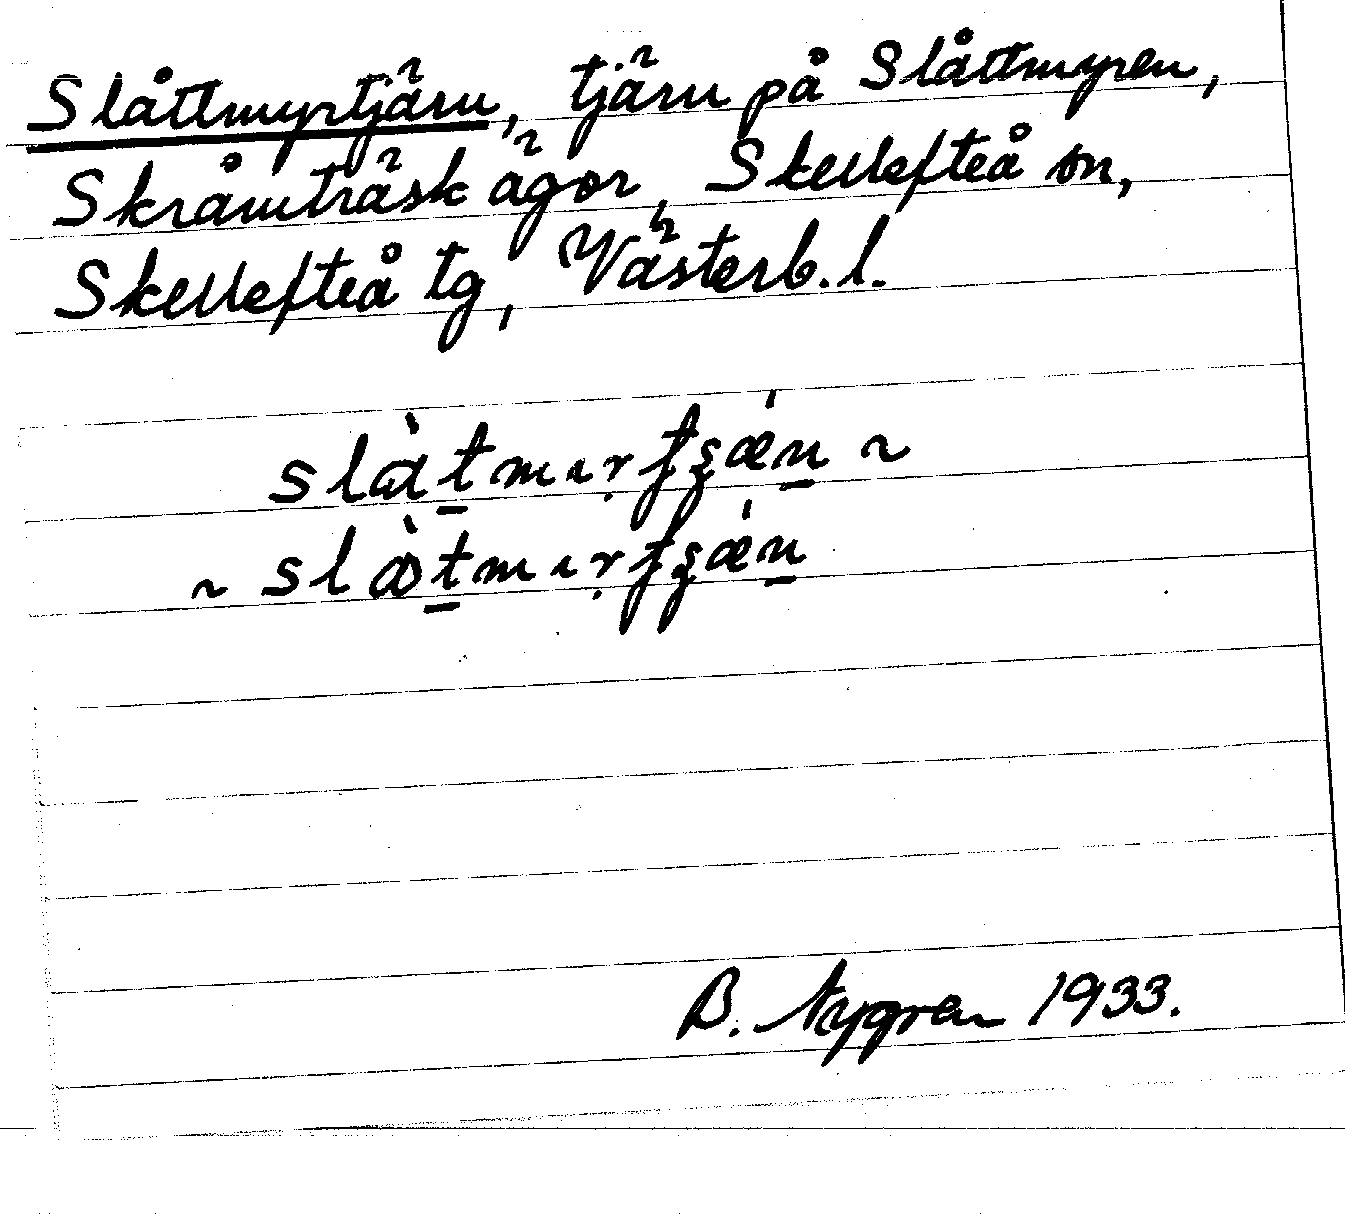 Slåttmyrtjärn, tjärn på Slåttmyren,
Skråmträsk ägor, Skellefteå sn,
Skellefteå tg, Västerb. l.
B. Nygren 1933.